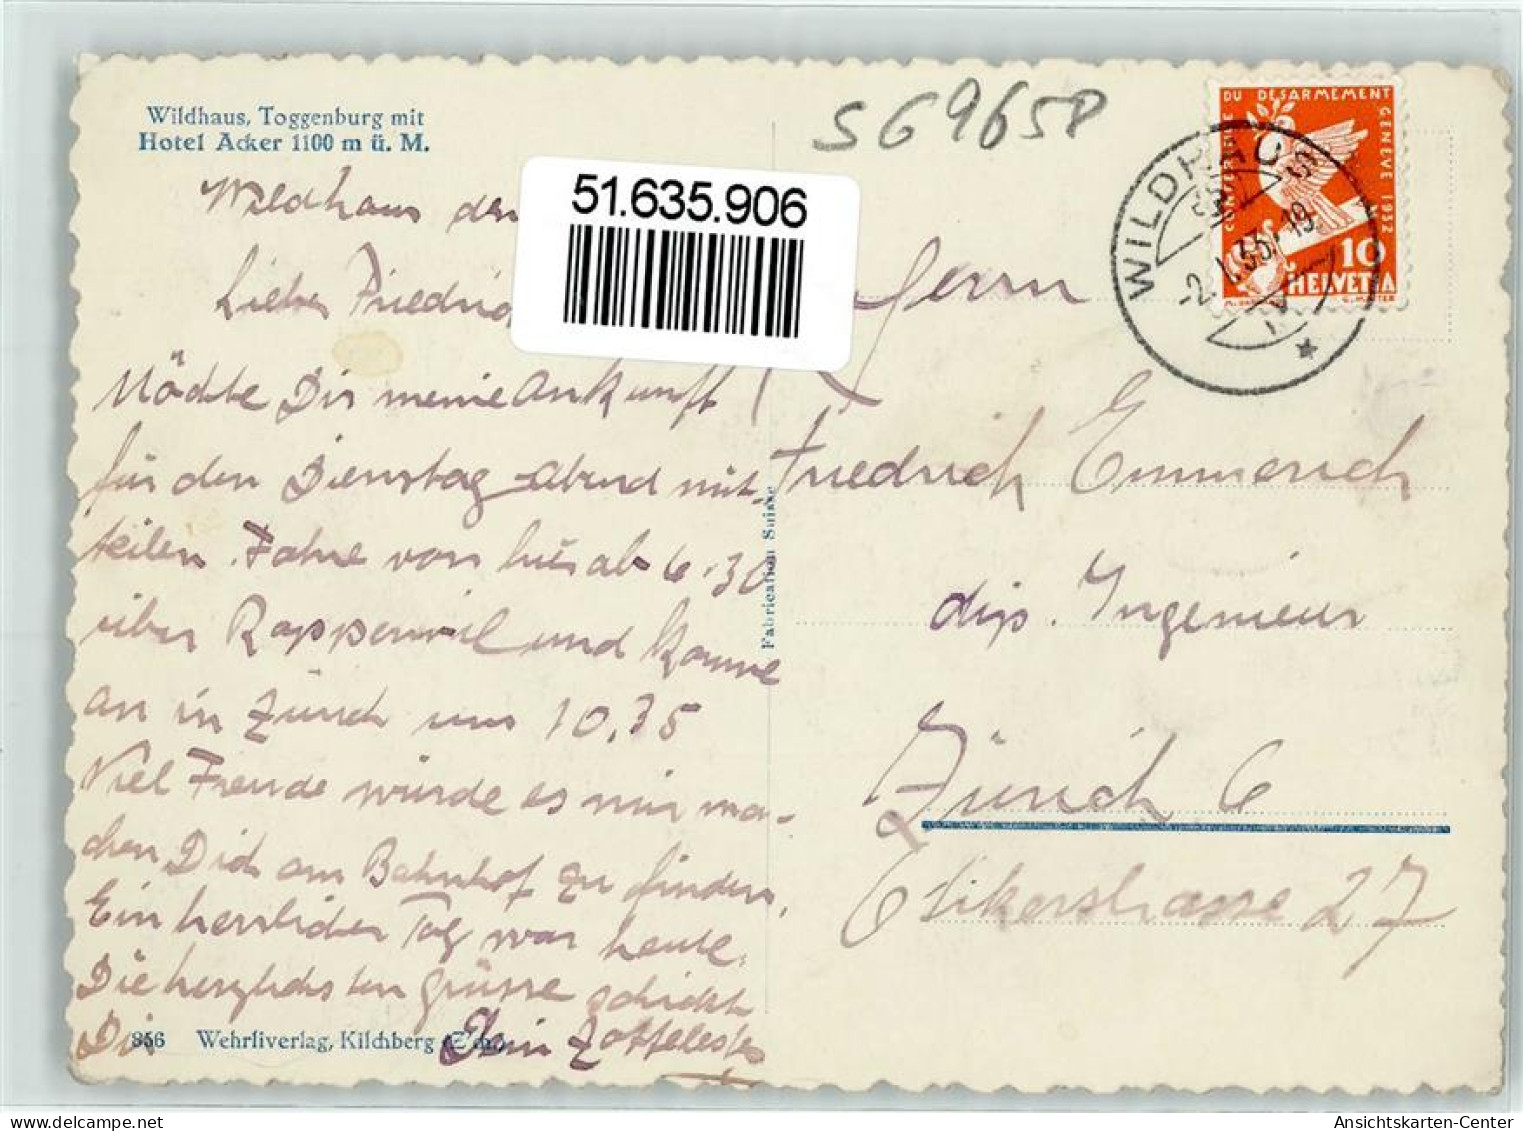 Wildhaus, Toggenburg mit
Hotel Acker 1100 m ü. M.
S69658
51.635.906
CONFERENCE DU DESARMEMENT GENEVE 1932
10
HELVETIA
WILDHAUS
-2.I.33.-19
Wildhaus den
Lieber Friedrich
Möchte Dir meine Ankunft
für den Dienstag abend mit-
teilen. Fahre von hier ab 6.30
über Rapperswil und komme
an in Zürich um 10.35
Viel Freude würde es mir ma-
chen Dich am Bahnhof zu finden.
Ein herrlicher Tag war heute.
Die herzlichsten Grüsse schickt
Dir Dein
Herrn
Friedrich Emmerich
dip. Ingenieur
Zürich 6
Ötikerstrasse 27
Fabrication Suisse
856 Wehrliverlag, Kilchberg (Zch.)
Ansichtskarten-Center